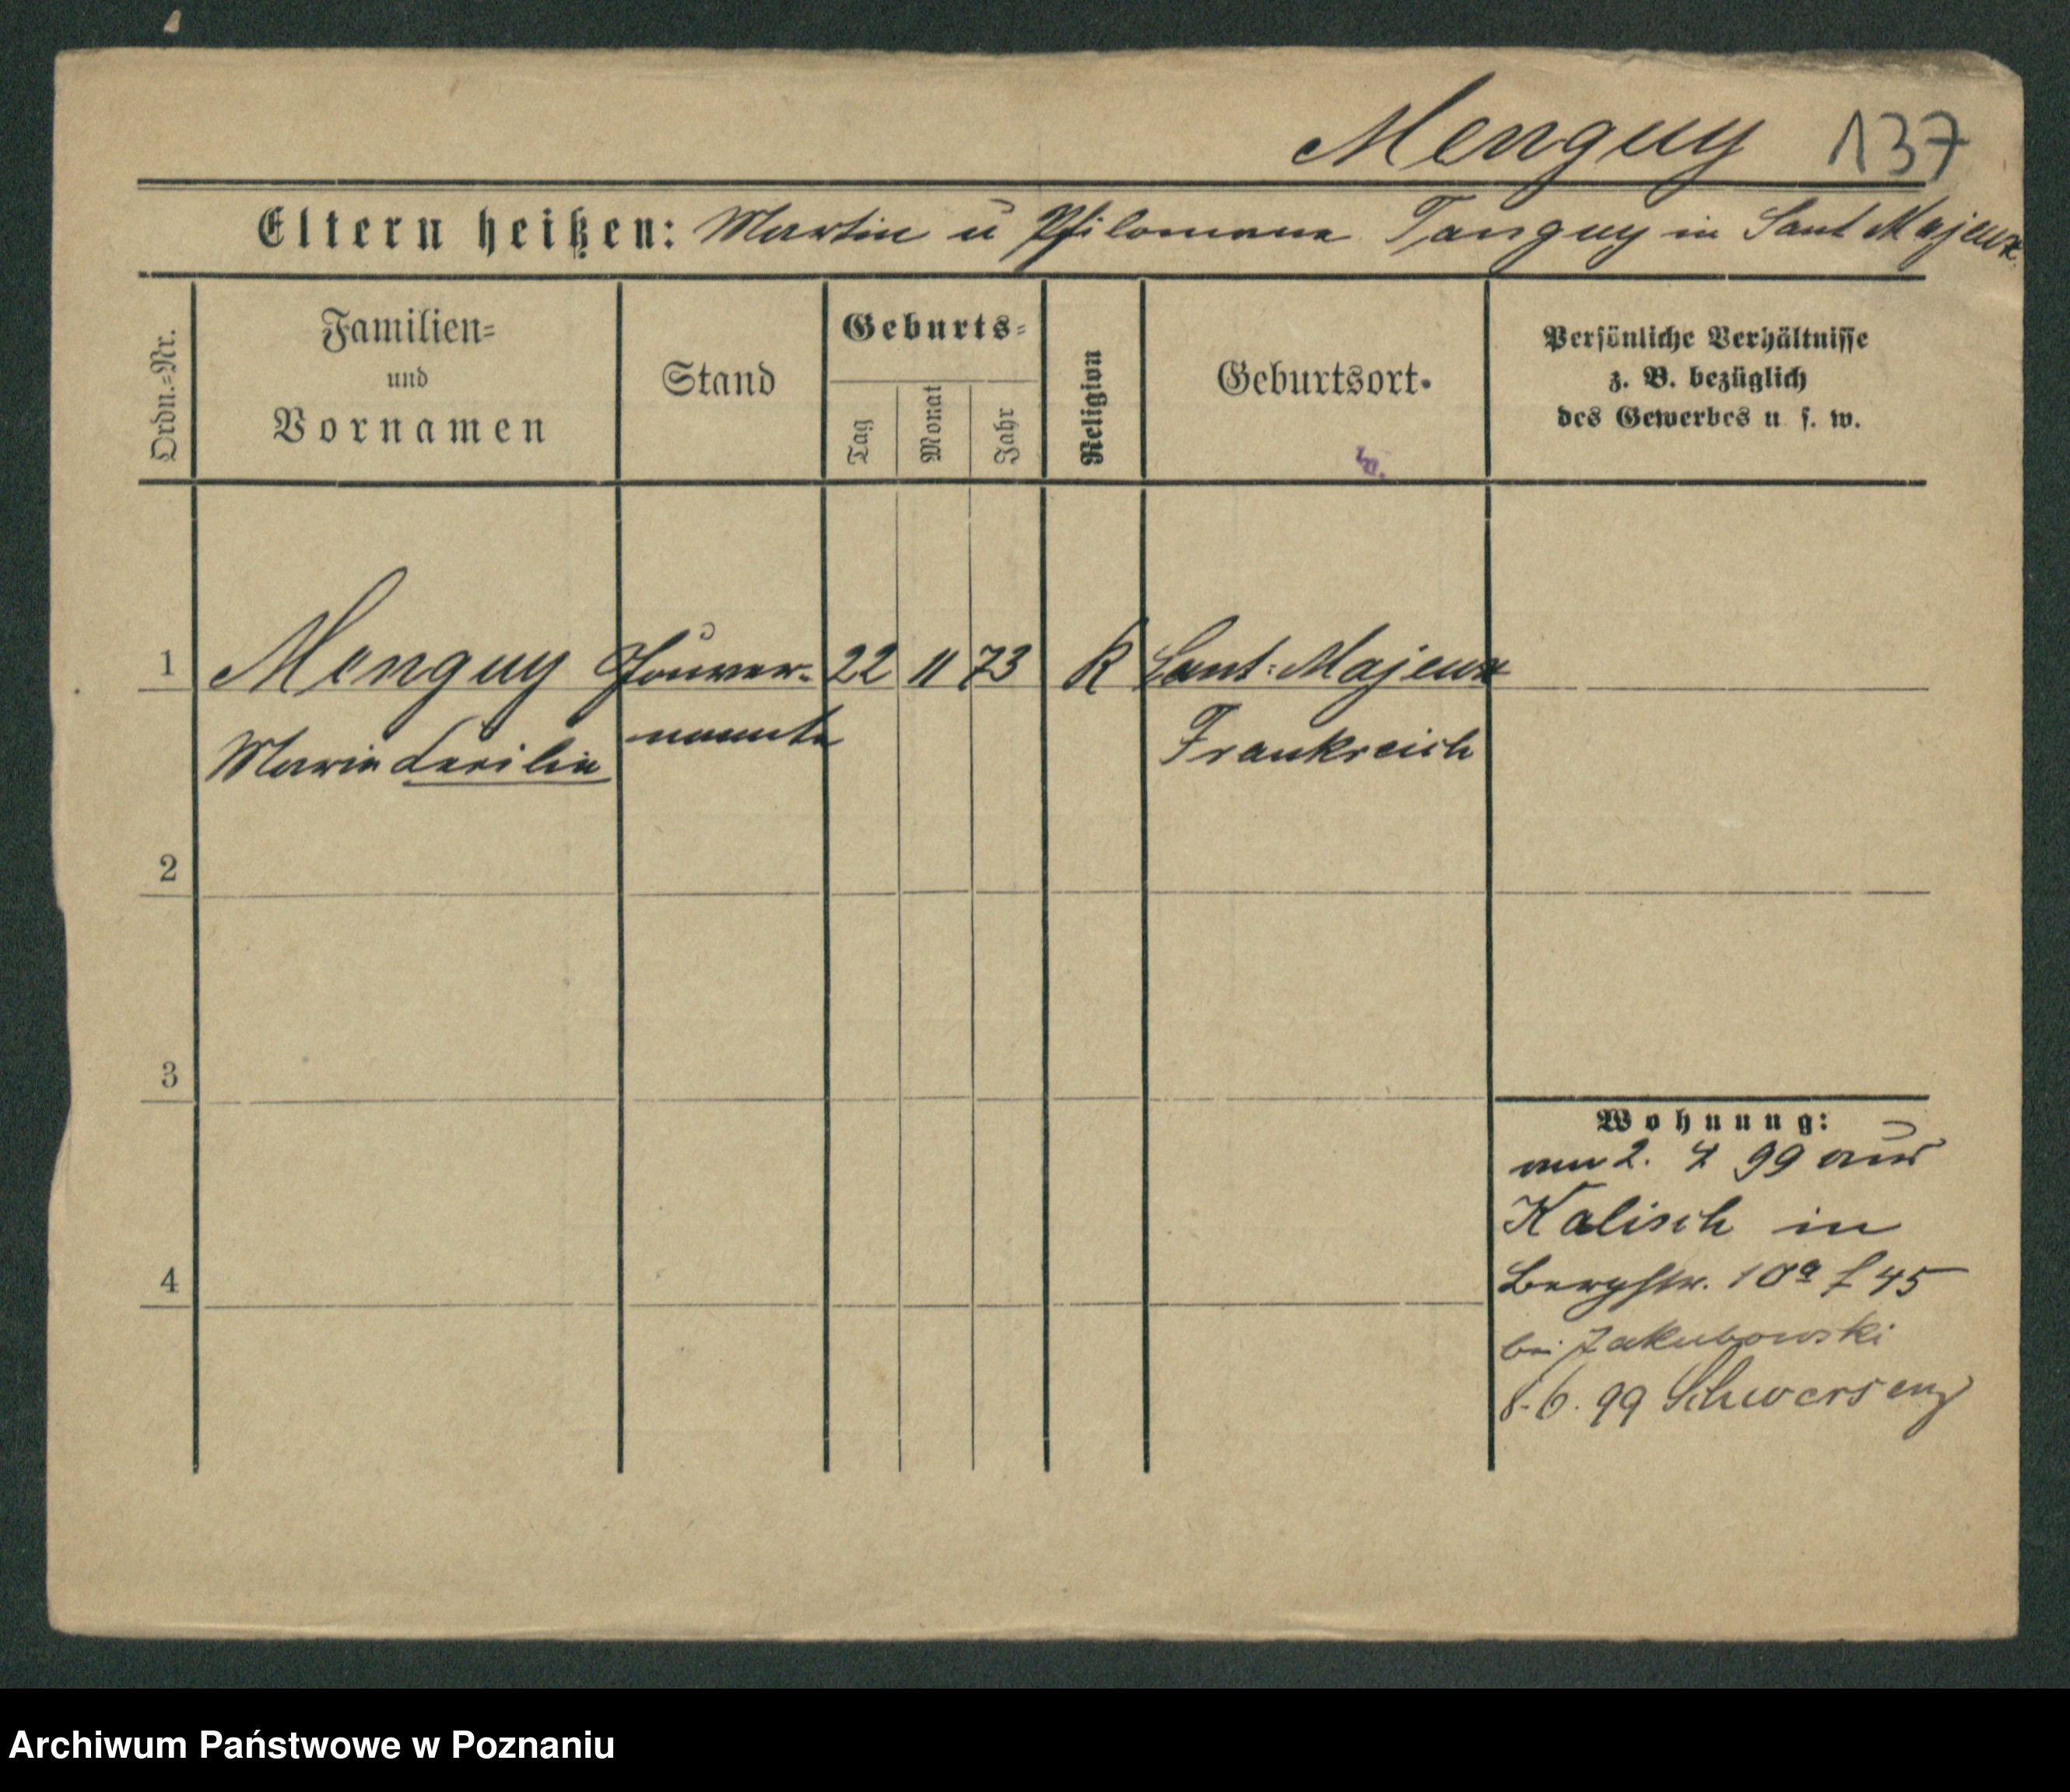 Menguy 137
Eltern heißen: Martin u Philomena Tanguy in Sant Majeux
Ordn.=Nr.
Familien=
und
Vornamen
Stand
Geburts=
Tag
Monat
Jahr
Religion
Geburtsort.
w.
Persönliche Verhältnisse
z. B. bezüglich
des Gewerbes u. s. w.
1 Menguy Gouver- 22 11 73 K Sant-Majeux
Marie Cecilie nannte Frankreich
2
3
4
Wohnung:
am 2. 4 99 aus
Kalisch in
Bergstr. 10a f 45
bei Jakubowski
8.6.99 Schwersenz
Archiwum Państwowe w Poznaniu